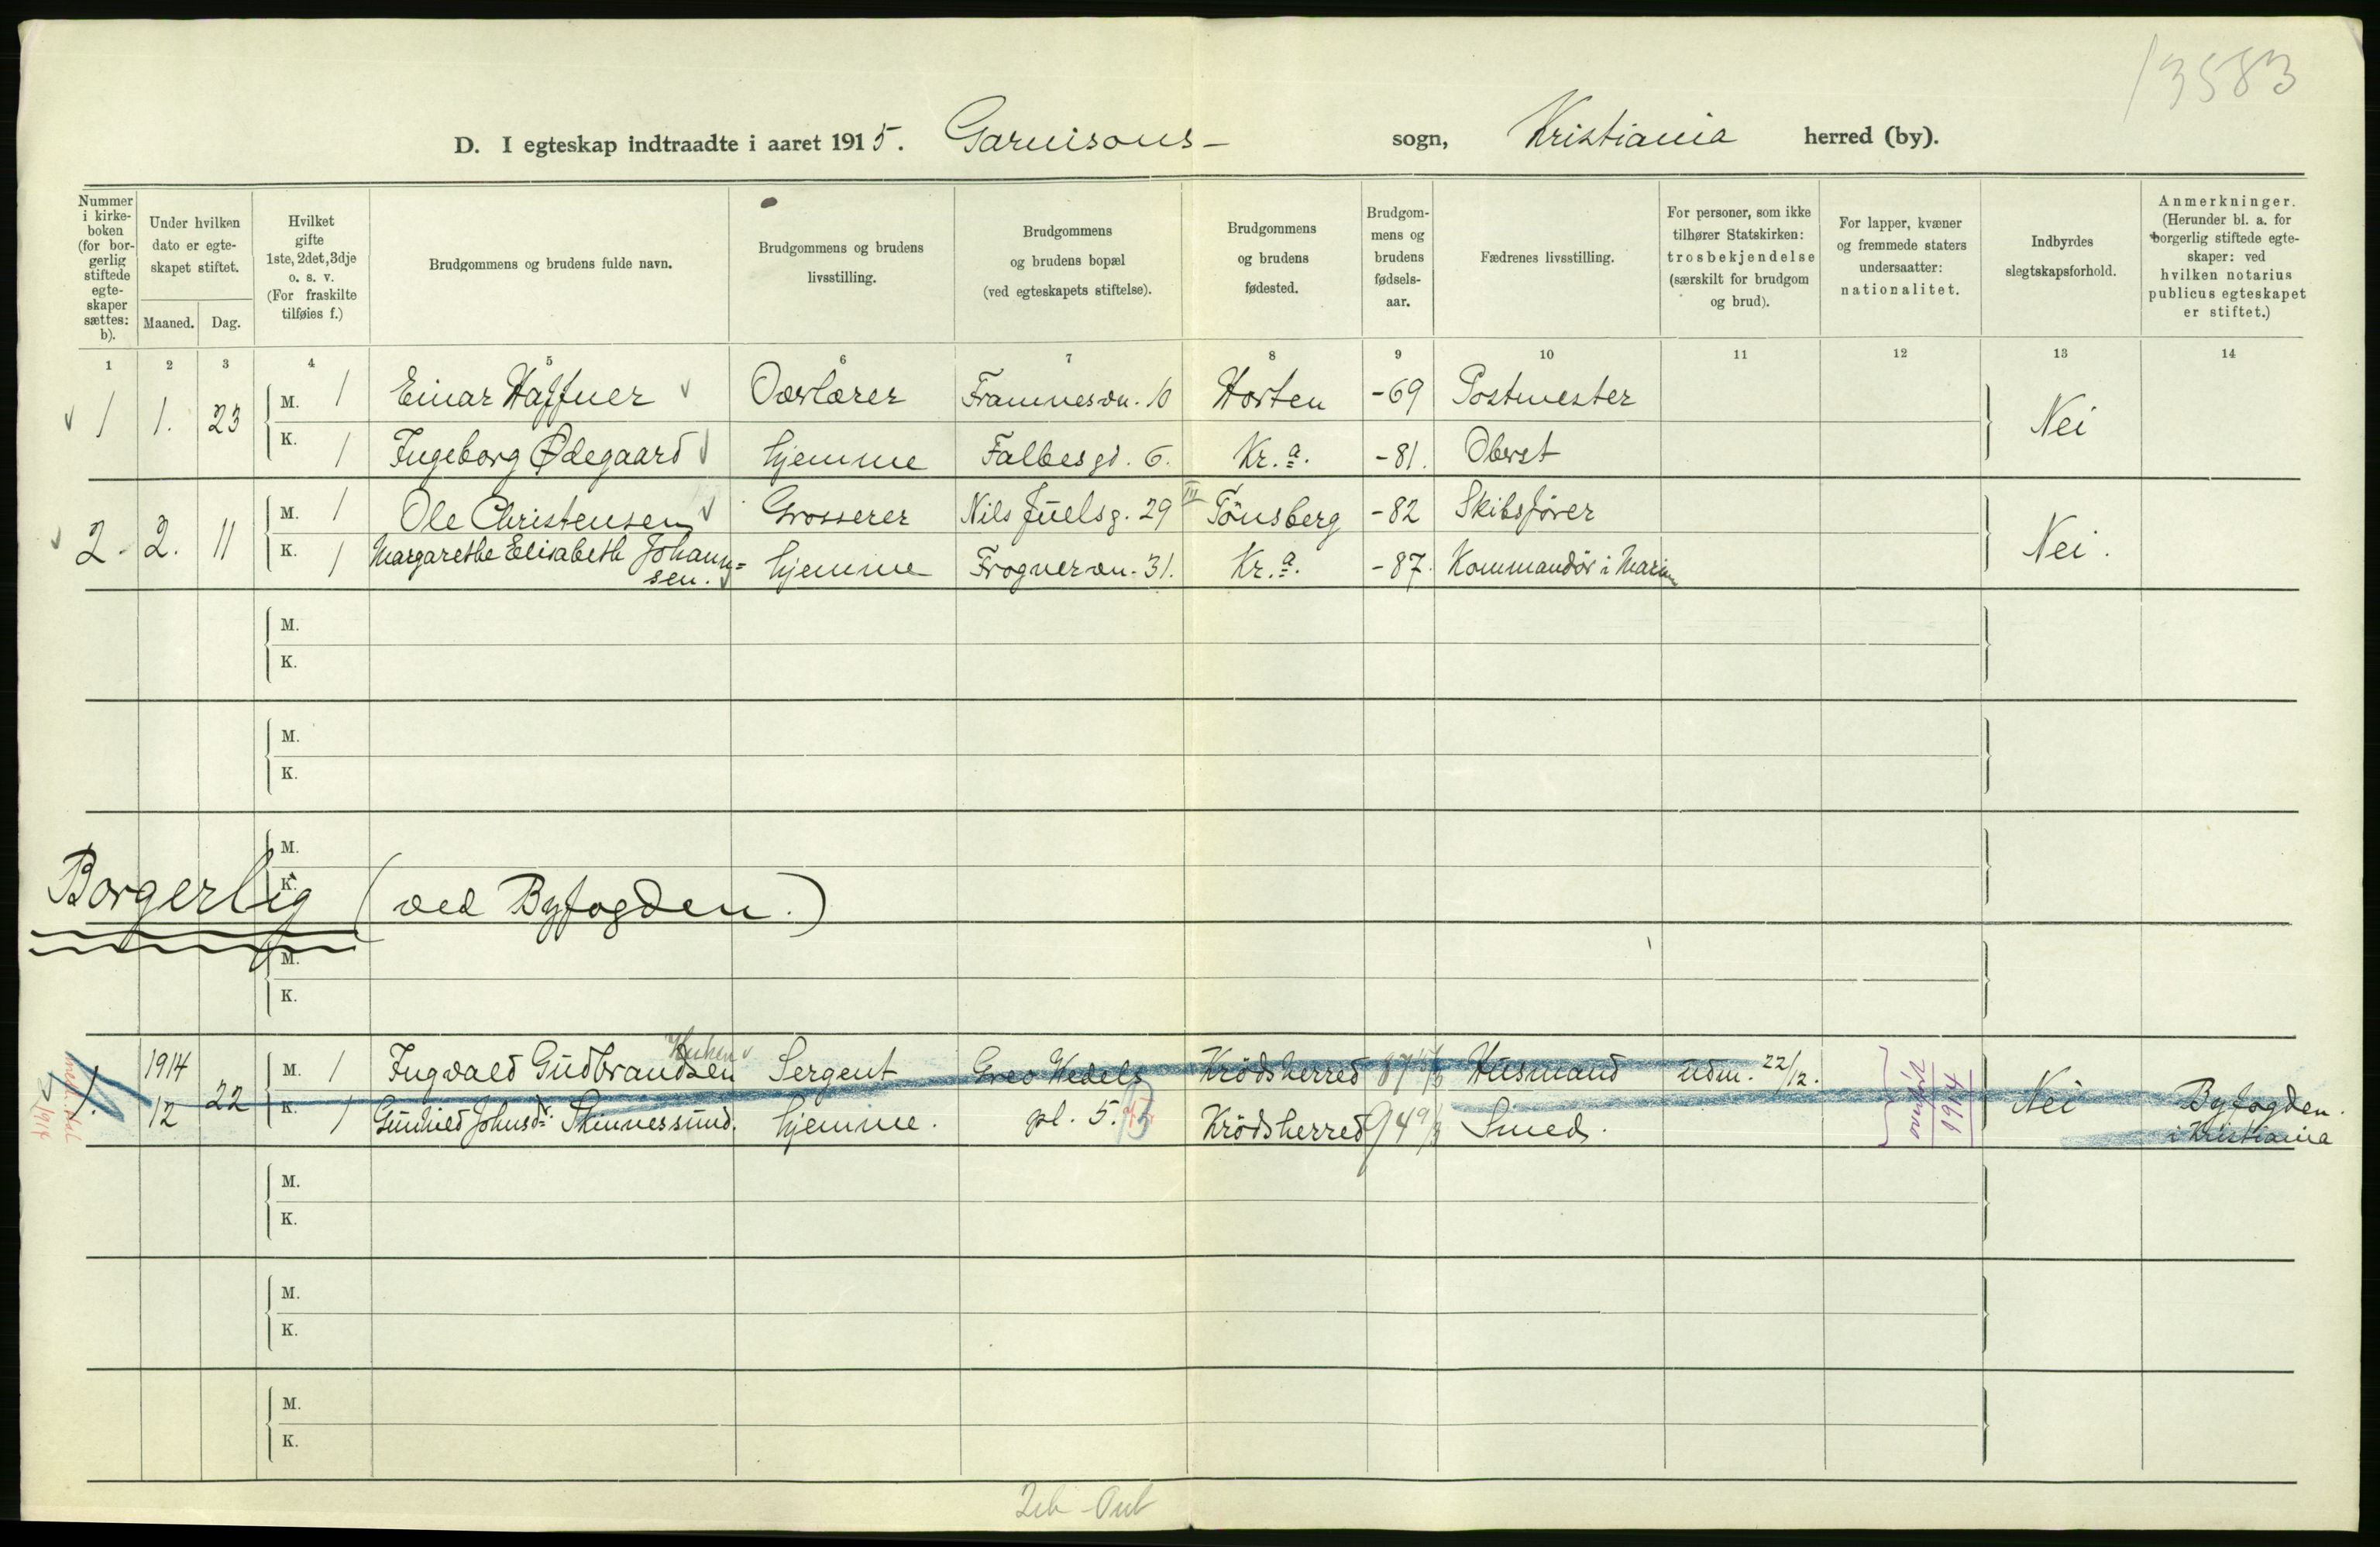 13583
D. I egteskap indtraadte i aaret 1915. Garnisons- sogn, Kristiania herred (by).
Nummer i kirke- boken (for bor- gerlig stiftede egte- skaper sættes: b).
Under hvilken dato er egte- skapet stiftet.
Maaned. Dag.
Hvilket gifte 1ste, 2det, 3dje o. s. v. (For fraskilte tilføies f.)
Brudgommens og brudens fulde navn.
Brudgommens og brudens livsstilling.
Brudgommens og brudens bopæl (ved egteskapets stiftelse).
Brudgommens og brudens fødested.
Brudgom- mens og brudens fødsels- aar.
Fædrenes livsstilling.
For personer, som ikke tilhører Statskirken: trosbekjendelse (særskilt for brudgom og brud).
For lapper, kvæner og fremmede staters undersaatter: nationalitet.
Indbyrdes slegtskapsforhold.
Anmerkninger. (Herunder bl. a. for borgerlig stiftede egte- skaper: ved hvilken notarius publicus egteskapet er stiftet.)
1 2 3 4 5 6 7 8 9 10 11 12 13 14
1 1. 23 M. 1 Einar Haffner Overlærer Framnesvn. 10 Horten -69 Postmester Nei
K. 1 Ingeborg Ødegaard hjemme Falbesgd. 6. Kr.a. -81. Oberst
2. 2. 11 M. 1 Ole Christensen Grosserer Nils Juelsg. 29 III Tönsberg -82 Skibsfører Nei.
K. 1 Margarethe Elisabeth Johann=
sen. hjemme Frognervn. 31. Kr.a. -87. Kommandör i Marin
M.
K.
M.
K.
M.
K.
Borgerlig (ved Byfogden.)
M.
K.
1. 1914 12 22 M. 1 Ingvald Gudbrandsen Sergent Grev Wedels Krödsherred 87 Husmand udm. 22/12. overført 1914 Nei Byfogden.
K. 1 Gunhild Johnsd. Skinnessund. hjemme. pl. 5. Krödsherred 94 Smed. i Kristiania
M.
K.
M.
K.
M.
K.